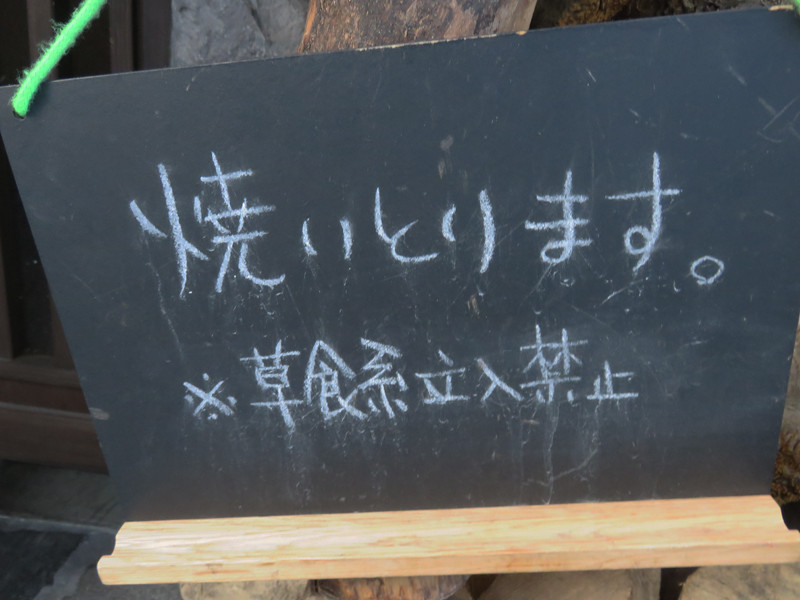 焼いとります。
※草食系立入禁止